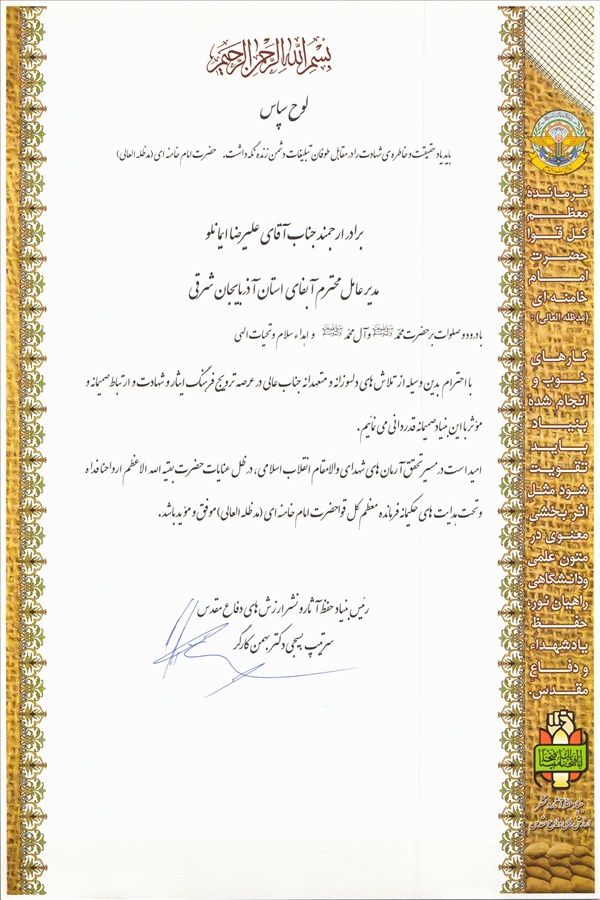 بسم الله الرحمن الرحیم
لوح سپاس
باید یاد حقیقت و خاطره ی شهادت را در مقابل طوفان تبلیغات دشمن زنده نگه داشت. حضرت امام خامنه ای (مدظله العالی)
برادر ارجمند جناب آقای علیرضا ایمانلو
مدیر عامل محترم آبفای استان آذربایجان شرقی
با درود و صلوات بر حضرت محمد ﷺ و آل محمد ﷺ و اهداء سلام و تحیات الهی
با احترام بدین وسیله از تلاش های دلسوزانه و متعهدانه جناب عالی در عرصه ترویج فرهنگ ایثار و شهادت و ارتباط صمیمانه و
مؤثر با این بنیاد صمیمانه قدردانی می نمایم.
امید است در مسیر تحقق آرمان های شهدای والامقام انقلاب اسلامی، در ظل عنایات حضرت بقیه الله الاعظم ارواحنا فداه
و تحت هدایت های حکیمانه فرمانده معظم کل قوا حضرت امام خامنه ای (مدظله العالی) موفق و مؤید باشد.
رئیس بنیاد حفظ آثار و نشر ارزش های دفاع مقدس
سرتیپ بسیجی دکتر بهمن کارگر
فرمانده
معظم
کل قوا
حضرت
امام
خامنه ای
(مدظله العالی):
کارهای
خوب و
انجام شده
بنیاد
باید
تقویت
شود مثل
اثر بخشی
معنوی در
متون علمی
ودانشگاهی
راهیان نور،
حفظ
یادشهداء
و دفاع
مقدس.
انا فتحنا لک فتحا مبینا
بنیاد حفظ آثار و نشر
ارزش های دفاع مقدس